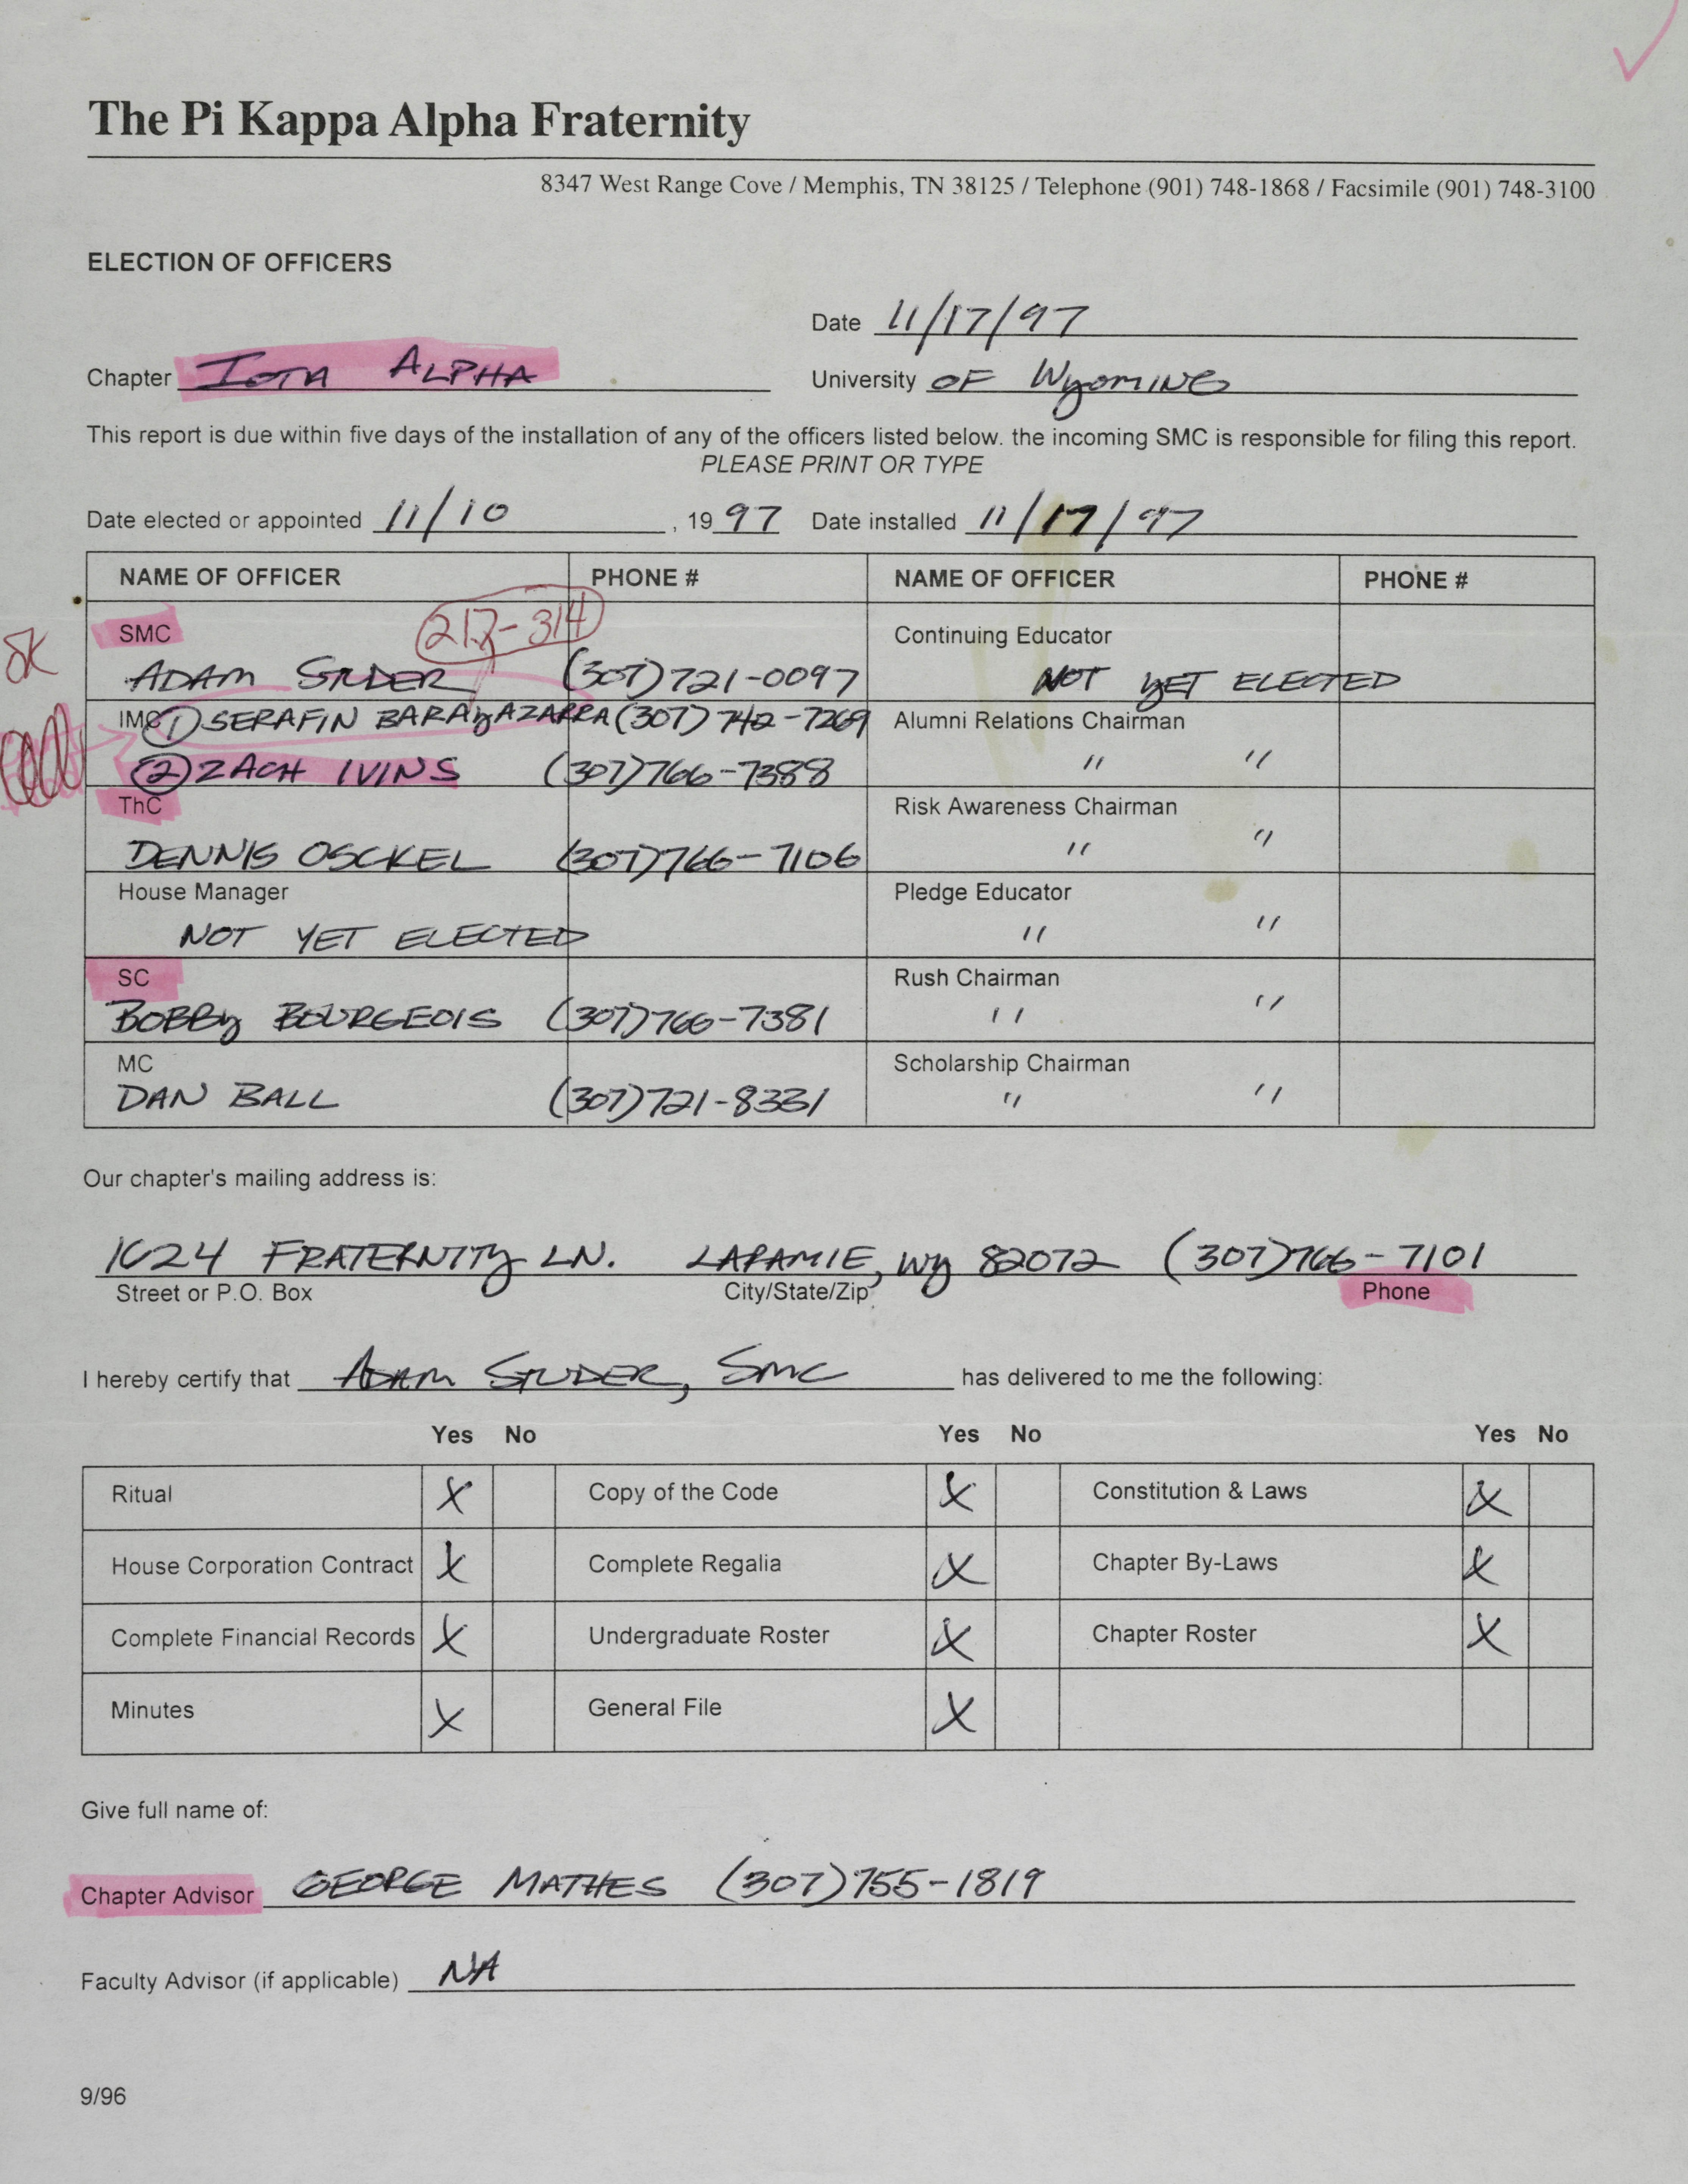 The Pi Kappa Alpha Fraternity
8347 West Range Cove / Memphis, TN 38125 / Telephone (901) 748-1868 / Facsimile (901) 748-3100
ELECTION OF OFFICERS
Date 11/17/97
Chapter IOTA ALPHA University OF WyOMING
This report is due within five days of the installation of any of the officers listed below. the incoming SMC is responsible for filing this report.
PLEASE PRINT OR TYPE
Date elected or appointed 11/10 , 19 97 Date installed 11/17/97
NAME OF OFFICER PHONE # NAME OF OFFICER PHONE #
SMC Continuing Educator
ADAM STUDER (307) 721-0097 NOT yET ELECTED
IMC ① SERAFIN BARAyAZARRA (307) 742-7269 Alumni Relations Chairman
② ZACH IVINS (307) 766-7388 " "
ThC Risk Awareness Chairman
DENNIS OSCKEL (307) 766-7106 " "
House Manager Pledge Educator
NOT YET ELECTED " "
SC Rush Chairman
BOBBy BOURGEOIS (307) 766-7381 " "
MC Scholarship Chairman
DAN BALL (307) 721-8331 " "
Our chapter's mailing address is:
1624 FRATERNITy LN. LARAMIE, Wy 82072 (307) 766-7101
Street or P.O. Box City/State/Zip Phone
I hereby certify that ADAM STUDER, SMC has delivered to me the following:
Yes No Yes No Yes No
Ritual X Copy of the Code X Constitution & Laws X
House Corporation Contract X Complete Regalia X Chapter By-Laws X
Complete Financial Records X Undergraduate Roster X Chapter Roster X
Minutes X General File X
Give full name of:
Chapter Advisor GEORGE MATHES (307) 755-1819
Faculty Advisor (if applicable) NA
9/96